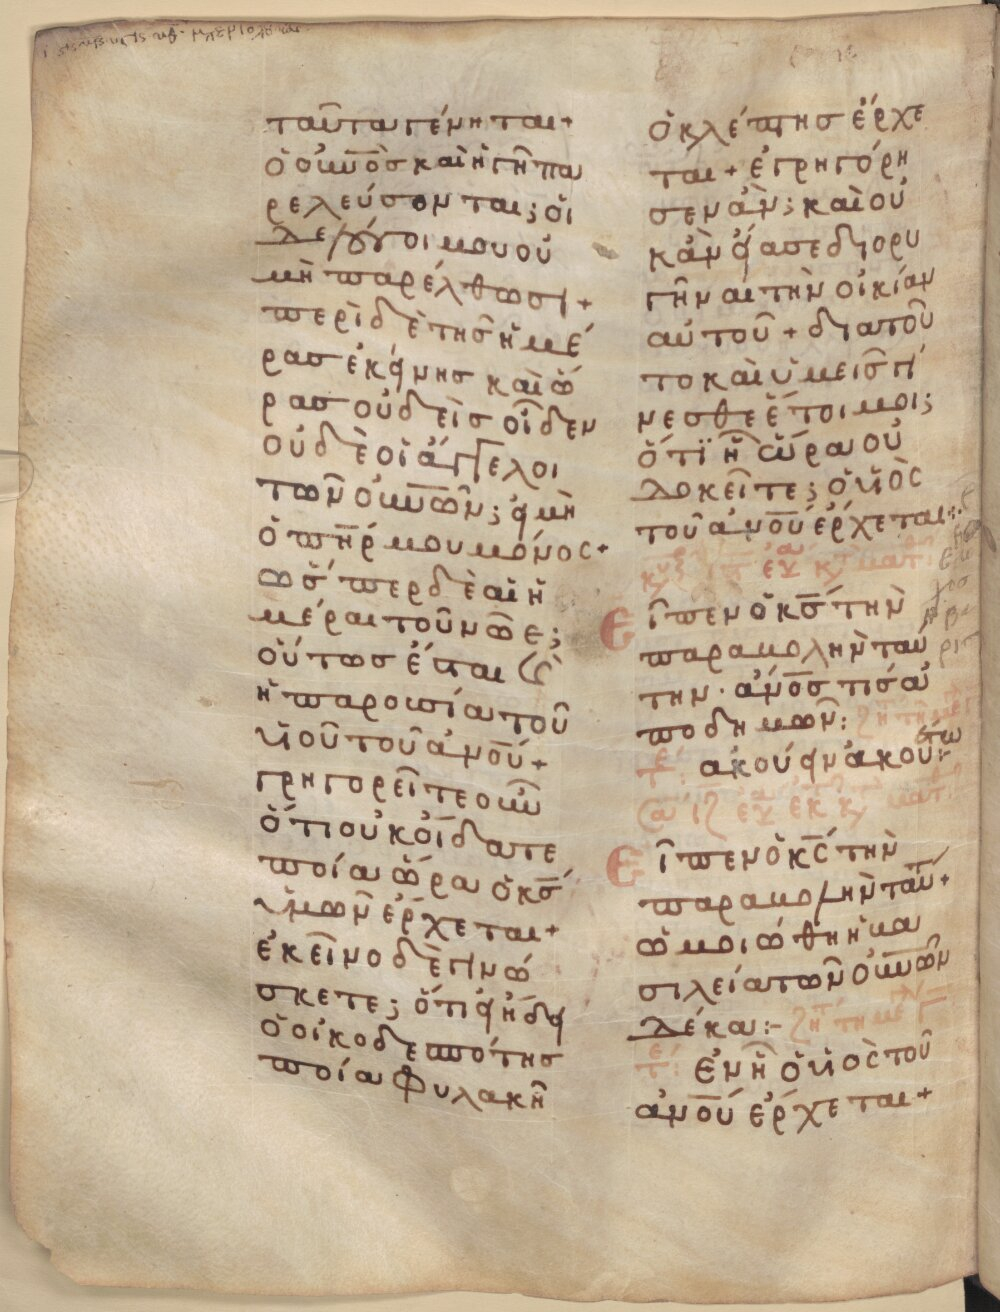 ταῦτα γένηται +
ὁ οὐνὸσ καὶ ἡ γῆ πα
ρελεύσονται; οἱ
λέ λόγοι μου οὐ
μὴ παρέλθωσι +
περὶ δὲ τησ ἡμέ
ρασ ἐκείνησ καὶ ὥ
ρασ οὐδεὶσ οἶδεν
οὐδὲ οἱ ἄγγελοι
τῶν οὐνῶν; εἰ μὴ
ὁ πηρ μου μόνος +
ὥσπερ δὲ αἱ ἡ
μέραι τοῦ νῶε;
οὕτωσ ἔσται καὶ
ἡ παρουσία τοῦ
υἱοῦ τοῦ ἀνού +
γρηγορεῖτε οὖν
ὅτι οὐκ οἴδατε
ποία ὥρα ὁ κσ
ὑμῶν ἔρχεται +
ἐκεῖνο δὲ γινώ
σκετε; ὅτι εἰ ἤδει
ὁ οἰκοδεσπότησ
ποία φυλακῆ
ὁ κλέπτησ ἔρχε
ται + ἐγρηγόρη
σεν ἂν; καὶ οὐ
κὰν εἴασε διορυ
γῆναι τὴν οἰκίαν
αὐτοῦ + διατοῦ
το καὶ ὑμεισ γί
νεσθε ἕτοιμοι;
ὅτι ἧ ὥρα οὐ
δοκεῖτε; ὁ υἱὸς
τοῦ ἀνού ἔρχεται:
Εἶπεν ὁ κσ τὴν
παραβολὴν ταύ
την· ἄνοσ τισ ἀ
ποδημῶν: ζητ
τε ἀκούειν ἀκουέτω
Εἶπεν ὁ κσ τὴν
παραβολὴν ταύτ +
ὡμοιώθη ἡ βα
σιλεία τῶν οὐνῶν
δέκα:-
τε Ἐν ἧ ὁ υἱὸς τοῦ
ἀνού ἔρχεται +